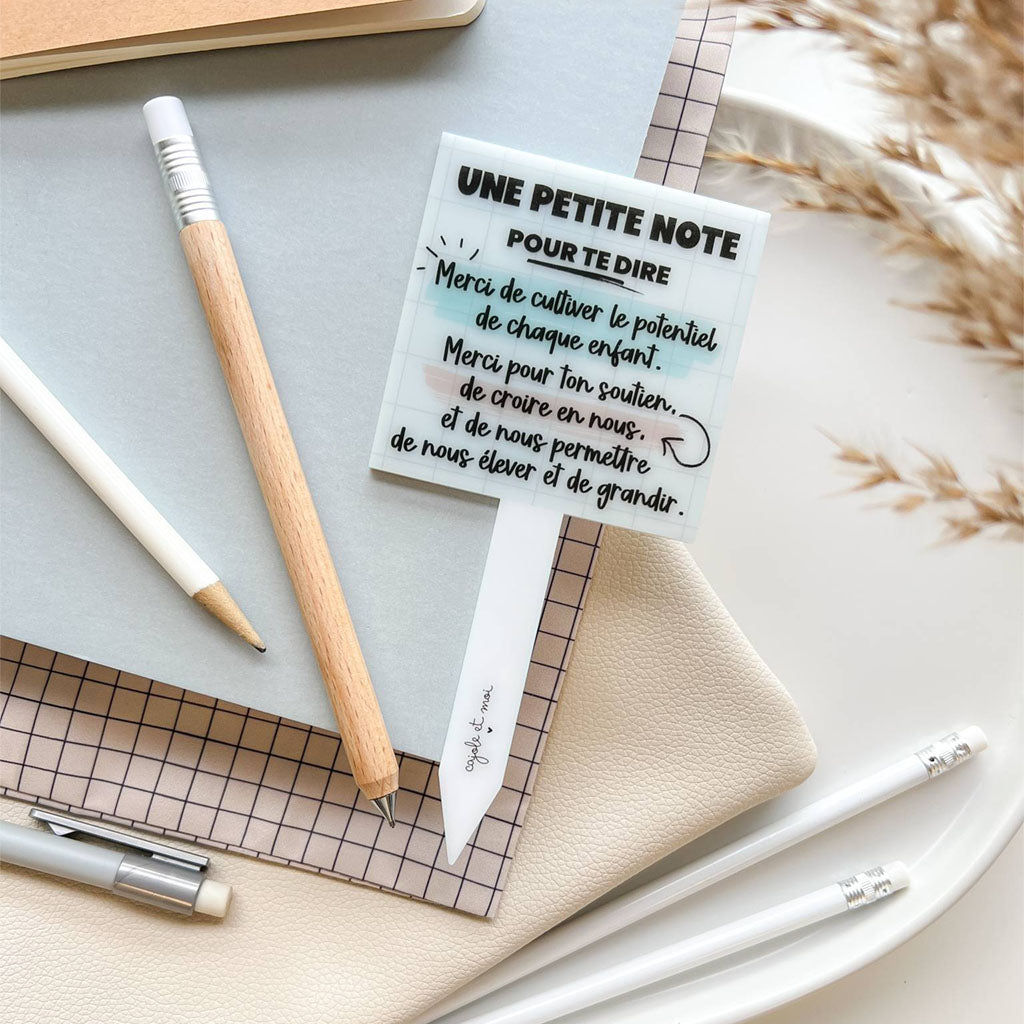 UNE PETITE NOTE
POUR TE DIRE
Merci de cultiver le potentiel
de chaque enfant.
Merci pour ton soutien,
de croire en nous,
et de nous permettre
de nous élever et de grandir.
cajole et moi